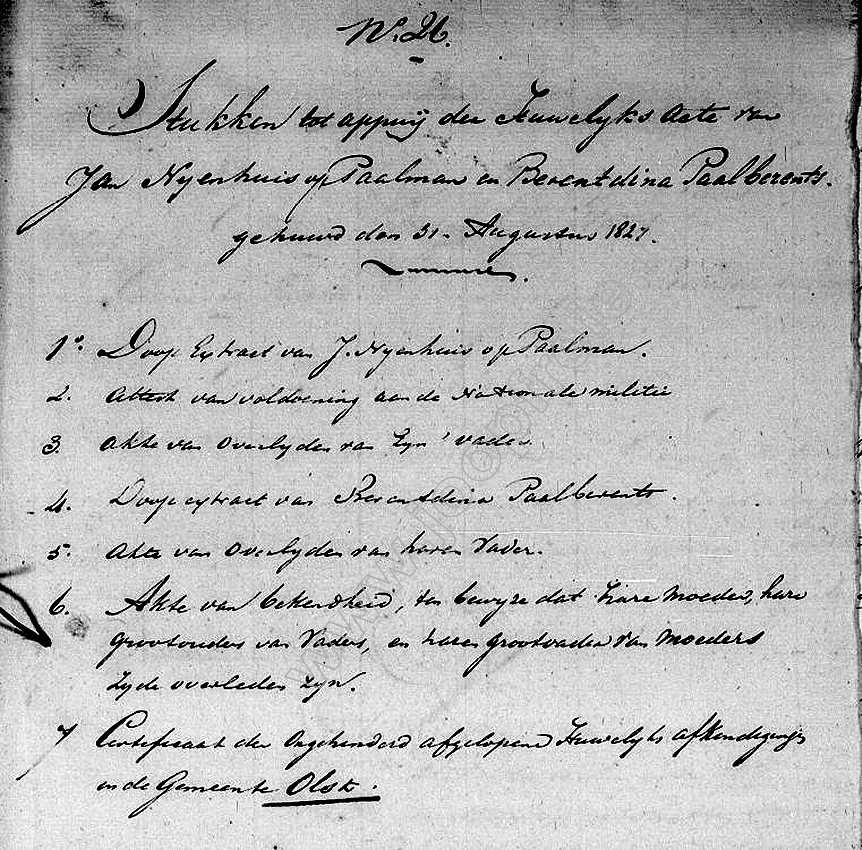 No. 26.
Stukken tot appuij der Huwelyks acte van
Jan Nyenhuis op Paalman en Berentdina Paalberents.
gehuwd den 31. Augustus 1827.
1o. Doop Extract van J. Nyenhuis op Paalman.
2. Attest van voldoening aan de Nationale militie
3. Akte van Overlyden van Zyn' vader.
4. Doop extract van Berentdina Paalberents.
5. Akte van Overlyden van haren Vader.
6. Akte van bekendheid, ten bewyze dat hare Moeder, hare
grootouders van Vaders, en haren grootvader van Moeders
zyde overleden zyn.
7 Certificaat der Ongehinderd afgelopene Huwelyks afkondigingen
in de Gemeente Olst.